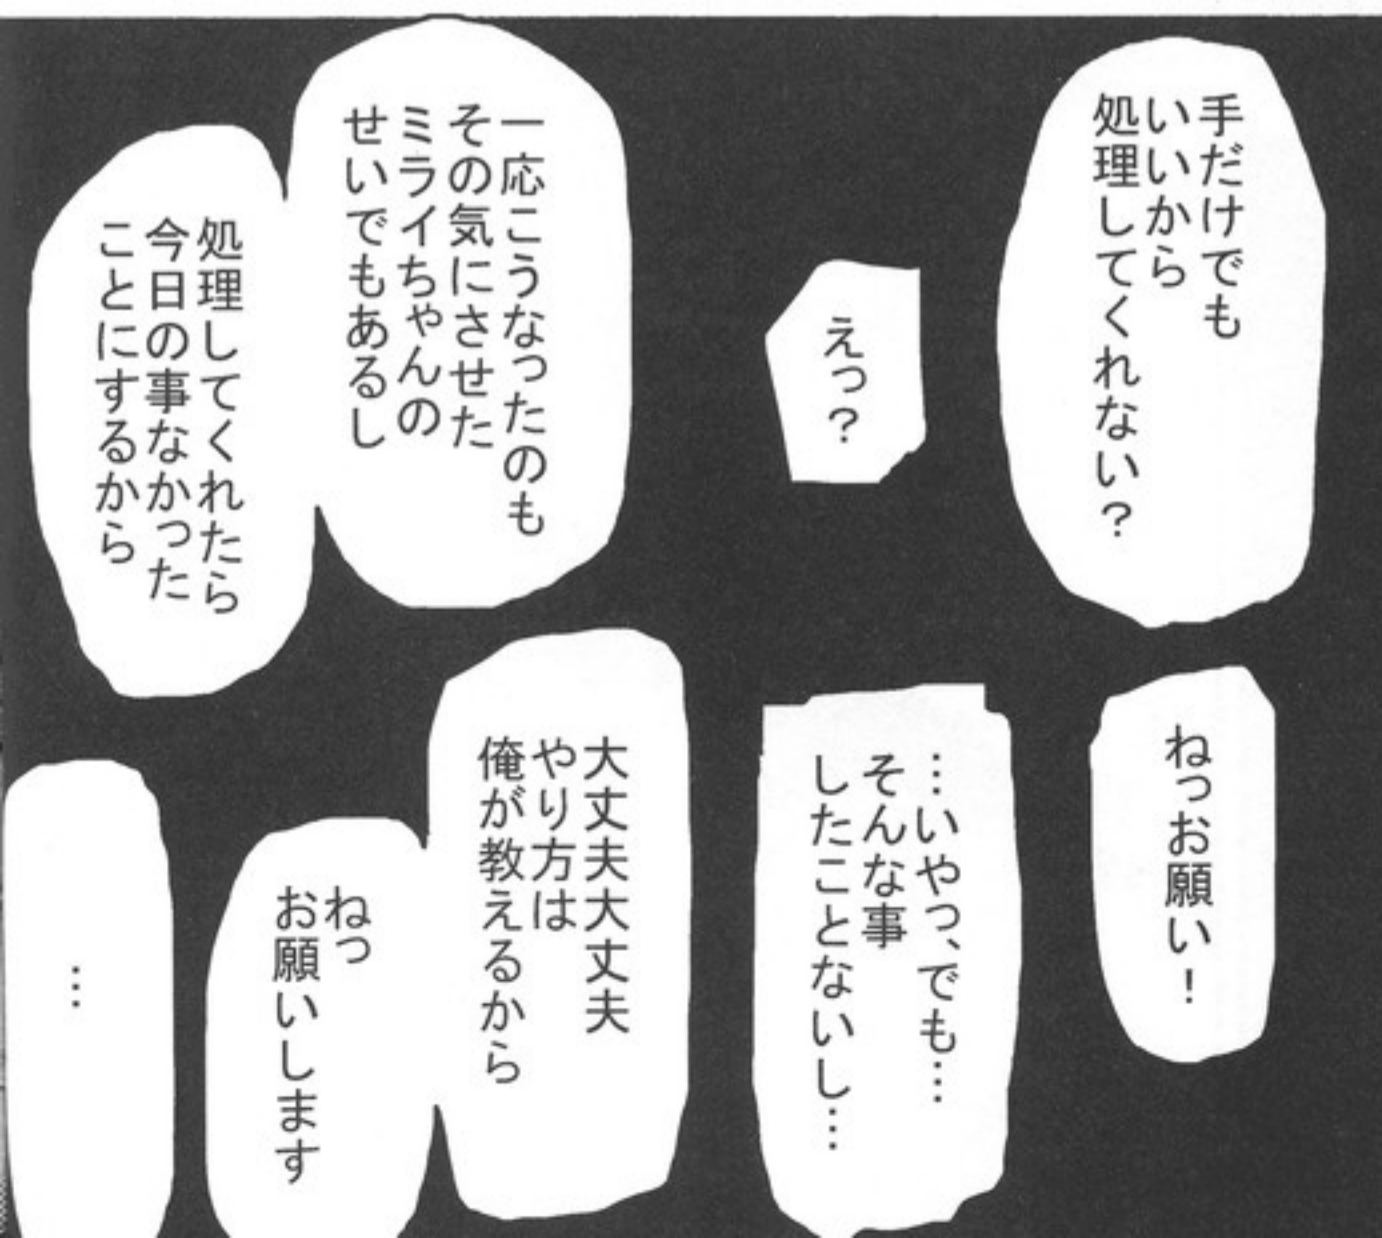 手だけでも
いいから
処理してくれない？
えっ？
一応こうなったのも
その気にさせた
ミライちゃんの
せいでもあるし
処理してくれたら
今日の事なかった
ことにするから
ねっお願い！
…いやっ、でも…
そんな事
したことないし…
大丈夫大丈夫
やり方は
俺が教えるから
ねっ
お願いします
…